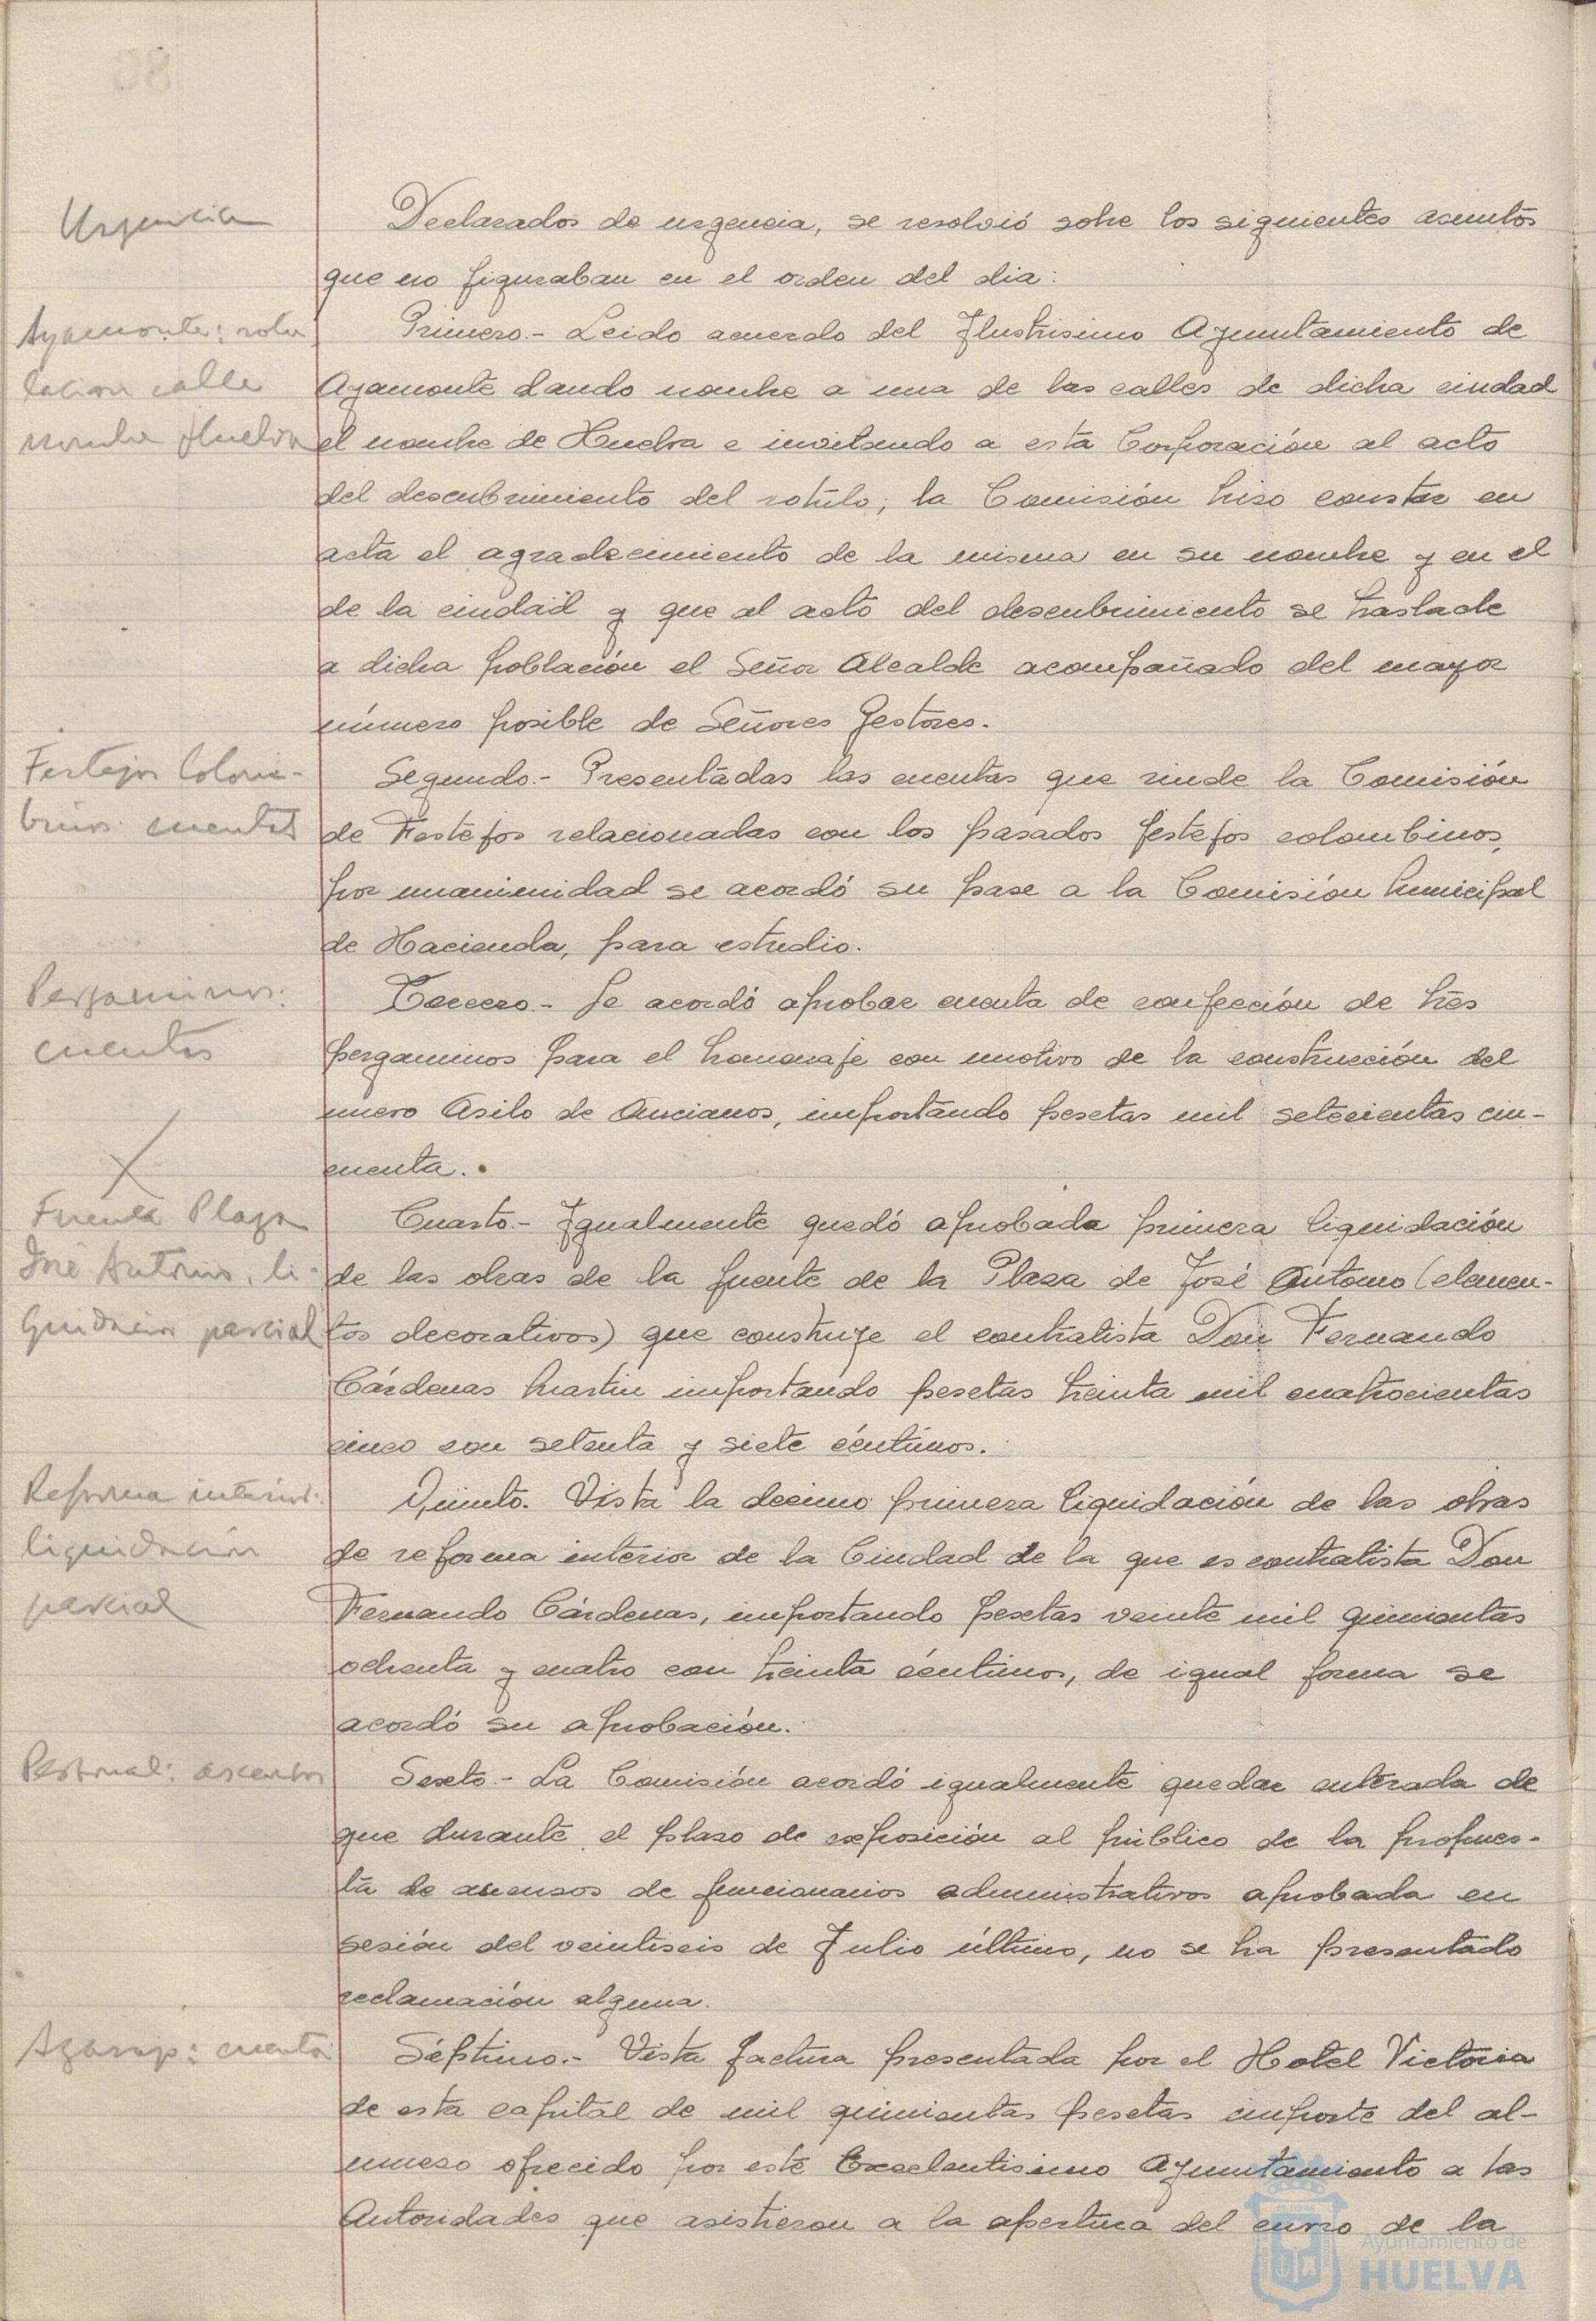 Urgencia
Declarados de urgencia, se resolvió sobre los siguientes asuntos
que no figuraban en el orden del dia:
Ayamonte: rotu
lacion calle
nombre Huelva
Primero.- Leido acuerdo del Ilustrisimo Ayuntamiento de
Ayamonte dando nombre a una de las calles de dicha ciudad
el nombre de Huelva e invitando a esta Corporación al acto
del descubrimiento del rotulo; la Comisión hizo constar en
acta el agradecimiento de la misma en su nombre y en el
de la ciudad y que al acto del descubrimiento se traslade
a dicha población el Señor Alcalde acompañado del mayor
número posible de Señores Gestores.
Festejos Colom-
binos: cuentas
Segundo.- Presentadas las cuentas que rinde la Comisión
de Festejos relacionadas con los pasados festejos colombinos,
por unanimidad se acordó su pase a la Comisión Municipal
de Hacienda, para estudio.
Pergaminos:
cuentas
Tercero.- Se acordó aprobar cuenta de confección de tres
pergaminos para el homenaje con motivo de la construcción del
nuevo Asilo de Ancianos, importando pesetas mil setecientas cin-
cuenta.
Fuente Plaza
José Antonio, li-
quidacion parcial
Cuarto.- Igualmente quedó aprobada primera liquidación
de las obras de la fuente de la Plaza de José Antonio (elemen-
tos decorativos) que construye el contratista Don Fernando
Cárdenas Martin importando pesetas treinta mil cuatrocientas
cinco con setenta y siete céntimos.
Reforma interior:
liquidación
parcial
Quinto. Vista la decimo primera liquidación de las obras
de reforma interior de la Ciudad de la que es contratista Don
Fernando Cárdenas, importando pesetas veinte mil quinientas
ochenta y cuatro con treinta céntimos, de igual forma se
acordó su aprobación.
Personal: ascensos
Sexto.- La Comisión acordó igualmente quedar enterada de
que durante el plazo de exposición al público de la propues-
ta de ascensos de funcionarios administrativos aprobada en
sesión del veintiseis de Julio último, no se ha presentado
reclamación alguna.
Agasajo: cuenta
Séptimo.- Vista factura presentada por el Hotel Victoria
de esta capital de mil quinientas pesetas importe del al-
muerzo ofrecido por este Excelentisimo Ayuntamiento a las
Autoridades que asistieron a la apertura del curso de la
Ayuntamiento de
HUELVA